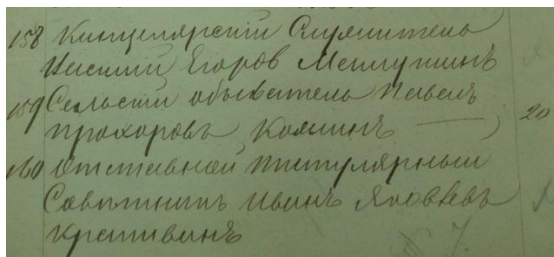 158 Канцелярскій Служитель
Василій Егоров
159 Сельскій обыватель Павелъ
Прохоровъ Коминъ — 20
160 Отставной титулярный
Советникъ Иванъ Яковлевъ
Крапивинъ